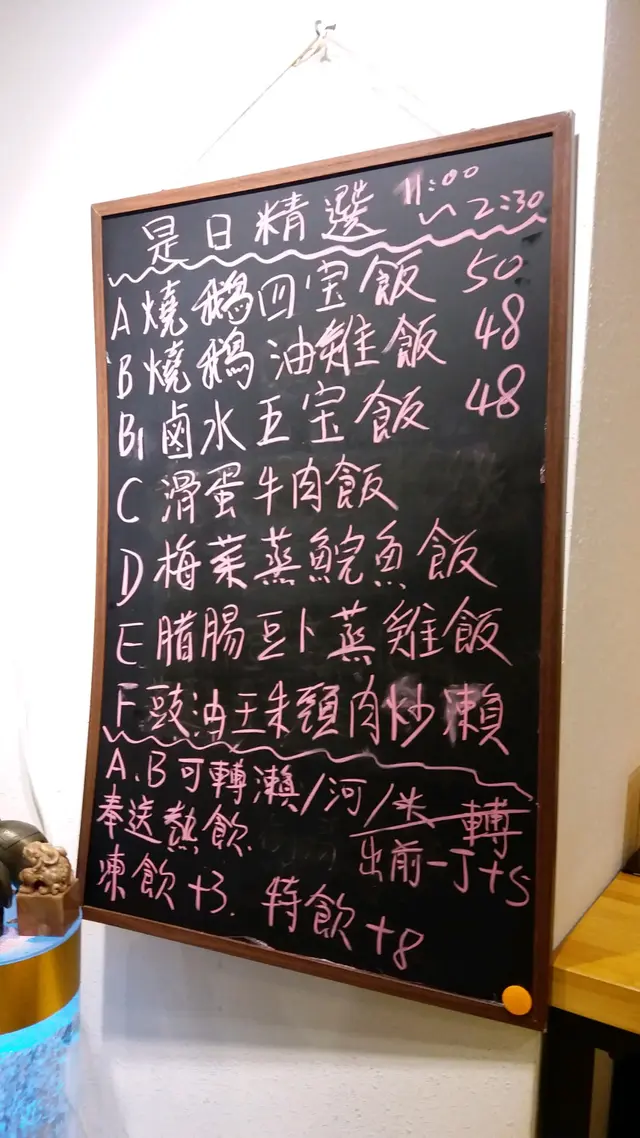 是日精選 11:00~2:30
A 燒鵝四宝飯 50
B 燒鵝油雞飯 48
B1 鹵水五宝飯 48
C 滑蛋牛肉飯
D 梅菜蒸鯇魚飯
E 腊腸豆卜蒸雞飯
F 豉油王朱頸肉炒瀨
A.B可轉瀨/河/米
奉送熱飲. 轉出前一丁+5
凍飲+3. 特飲+8